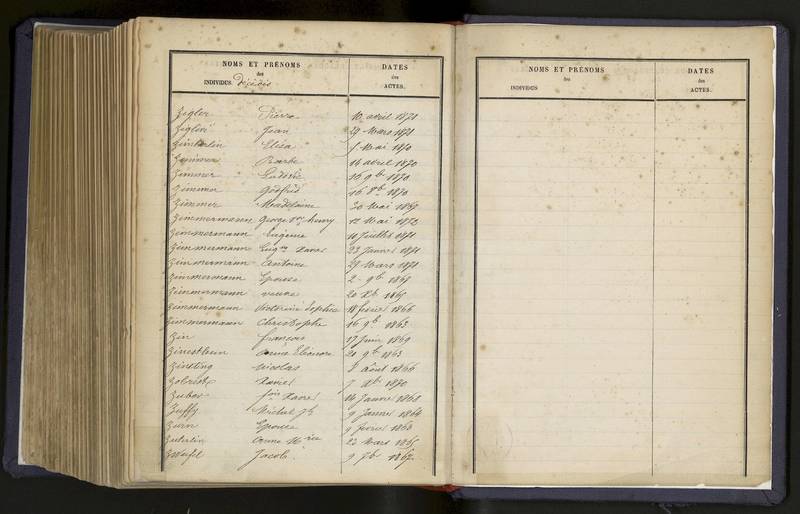 NOMS ET PRÉNOMS
des
INDIVIDUS décédés
DATES
des
ACTES.
Zigler Pierre 10 avril 1871
Jean 29 Mars 1871
Zimberlin Elisa Mai 1870
Zimmer Barbe 14 avril 1870
Zimmer 16 9b 1870
Zimmer Godfrid 16 8b 1870
Zimmer Madelaine 20 Mai 1867
Zimmermann George henry 12 Mai 1872
Zimmermann Eugénie Juillet 1871
Zimmermann Eug Xavier 23 Janvier 1871
Zimmermann Antoine 27 Mars 1871
Zimmermann Epouse 2 9b 1867
Zimmermann veuve 20 Xb 1867
Zimmermann Victorine Sophie 18 fevrier 1866
Zimmermann Christophe 16 9b 1863
Zin francois 17 Juin 1869
anna Eléonore 20 9b 1863
Zinsling Nicolas août 1866
Zobrist Xavier 7 Xb 1870
Zuber Xavier 14 Janvier 1868
Zuffy Michel 9 Janvier 1864
Zurn Epouse 9 fevrier 1868
Zuberlin Anne M 22 Mars 1865
Zweifel Jacob 9 7b 1862
NOMS ET PRÉNOMS
des
INDIVIDUS
DATES
des
ACTES.